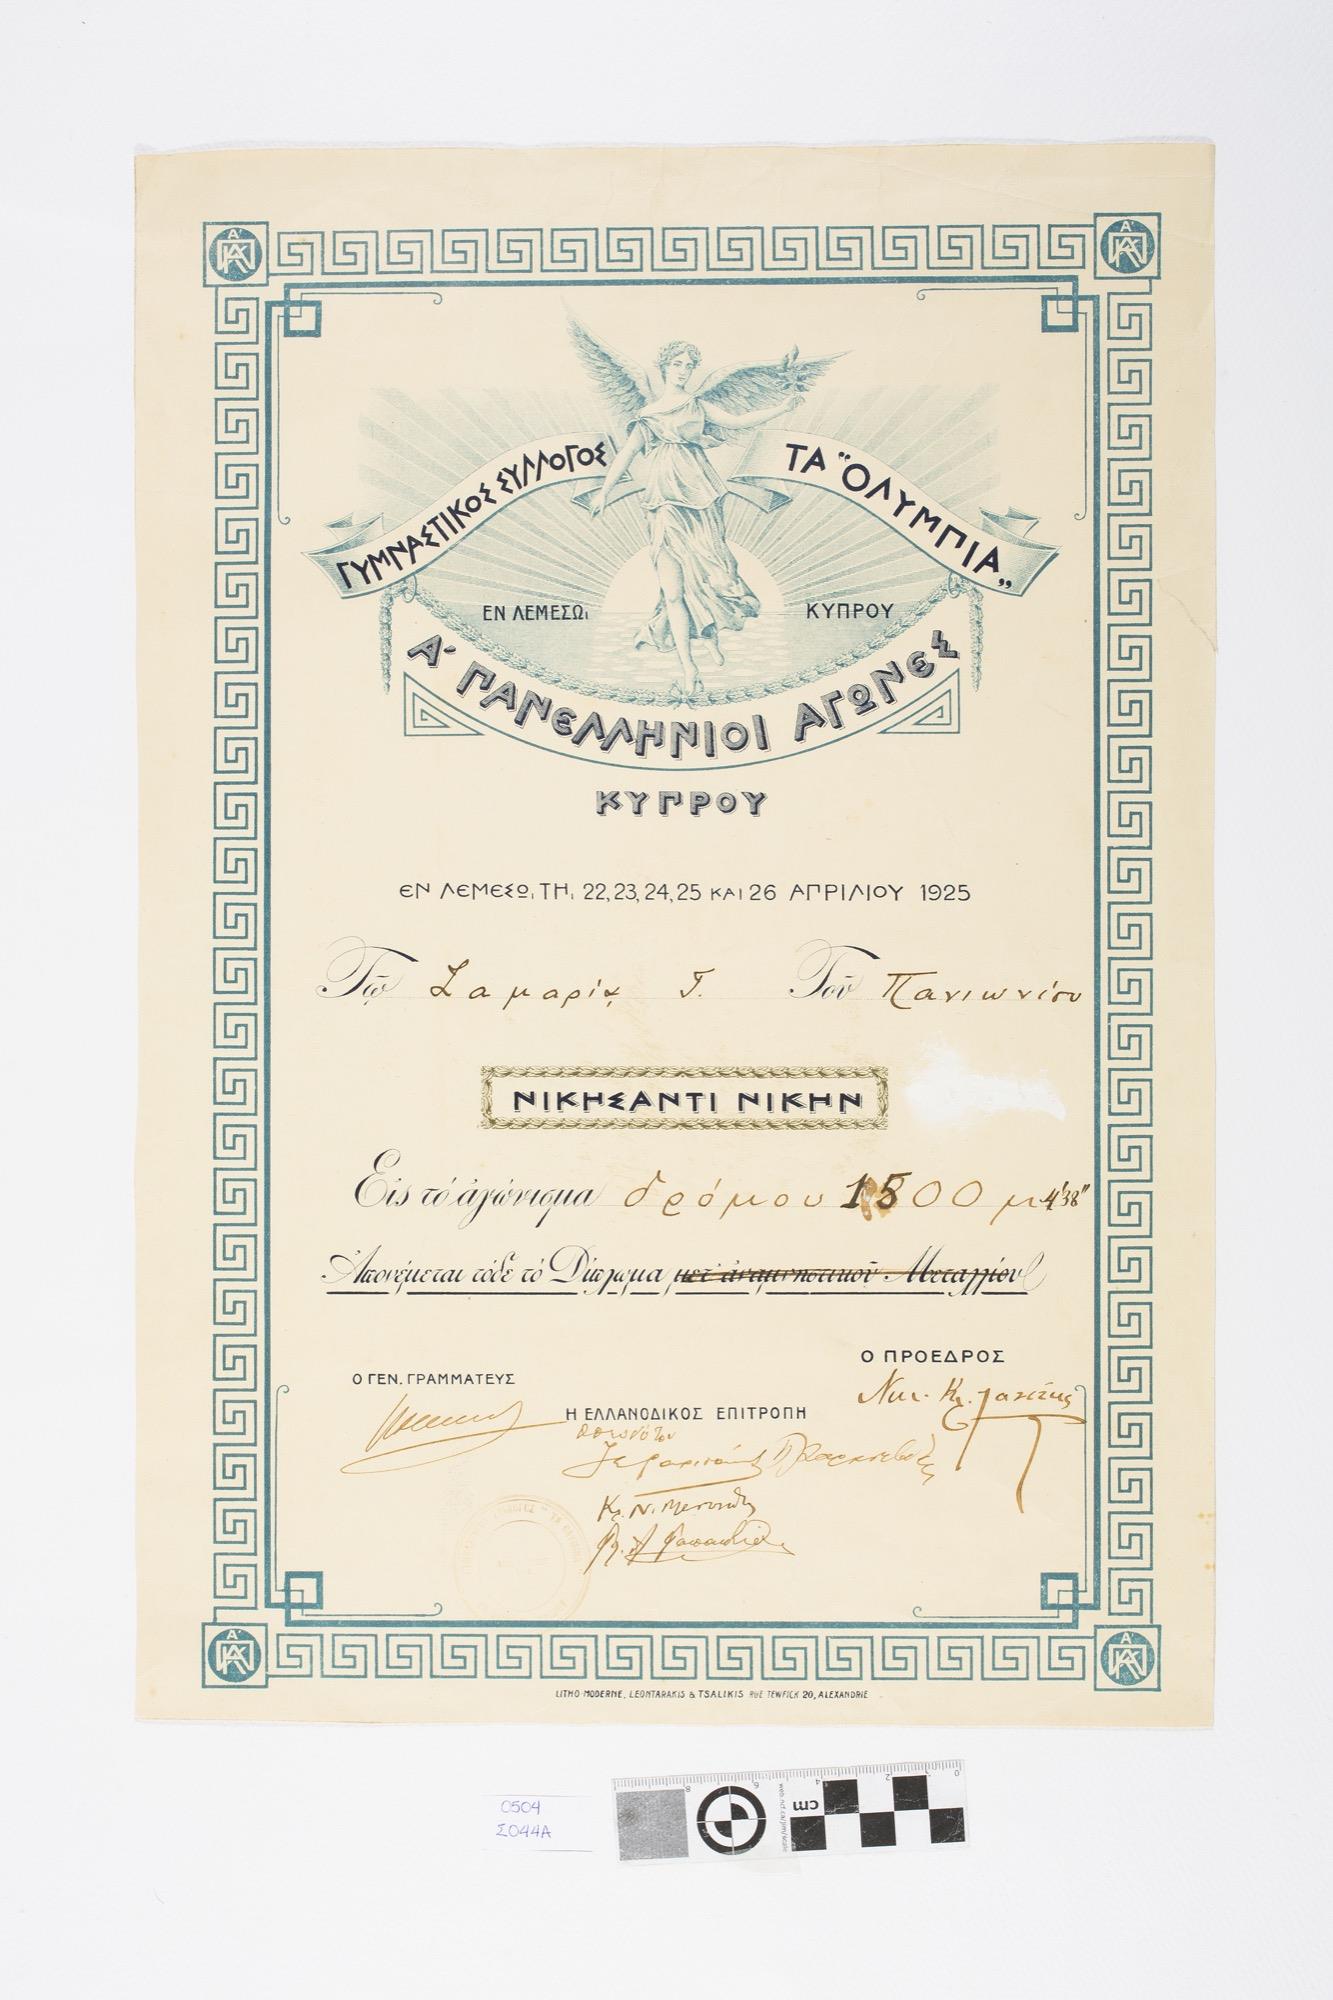 ΓΥΜΝΑΣΤΙΚΟΣ ΣΥΛΛΟΓΟΣ ΤΑ "ΟΛΥΜΠΙΑ„
ΕΝ ΛΕΜΕΣΩι ΚΥΠΡΟΥ
Α' ΠΑΝΕΛΛΗΝΙΟΙ ΑΓΩΝΕΣ
ΚΥΠΡΟΥ
ΕΝ ΛΕΜΕΣΩι ΤΗι 22, 23, 24, 25 ΚΑΙ 26 ΑΠΡΙΛΙΟΥ 1925
Τῷ Σαμαρίᾳ Γ. Τοῦ Πανιωνίου
ΝΙΚΗΣΑΝΤΙ ΝΙΚΗΝ
Εἰς τό ἀγώνισμα δρόμου 1500 μ 4'38"
Ἀπονέμεται τόδε τό Δίπλωμα μετ' ἀναμνηστικοῦ Μεταλλίου
Ο ΠΡΟΕΔΡΟΣ
Ο ΓΕΝ. ΓΡΑΜΜΑΤΕΥΣ
Η ΕΛΛΑΝΟΔΙΚΟΣ ΕΠΙΤΡΟΠΗ
LITHO-MODERNE, LEONTARAKIS & TSALIKIS RUE TEWFICK 20, ALEXANDRIE
0504
Σ044Α
cm